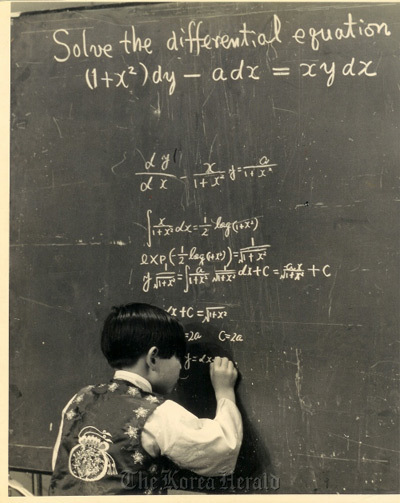 Solve the differential equation
(1+x²)dy − adx = xydx
dy/dx − x/(1+x²) y = a/(1+x²)
∫ x/(1+x²) dx = 1/2 log(1+x²)
exp(−1/2 log(1+x²)) = 1/√(1+x²)
y 1/√(1+x²) = ∫ a/(1+x²) 1/√(1+x²) dx + C = ax/√(1+x²) + C
x + C = √(1+x²)
=2a C=2a
y=
The Korea Herald